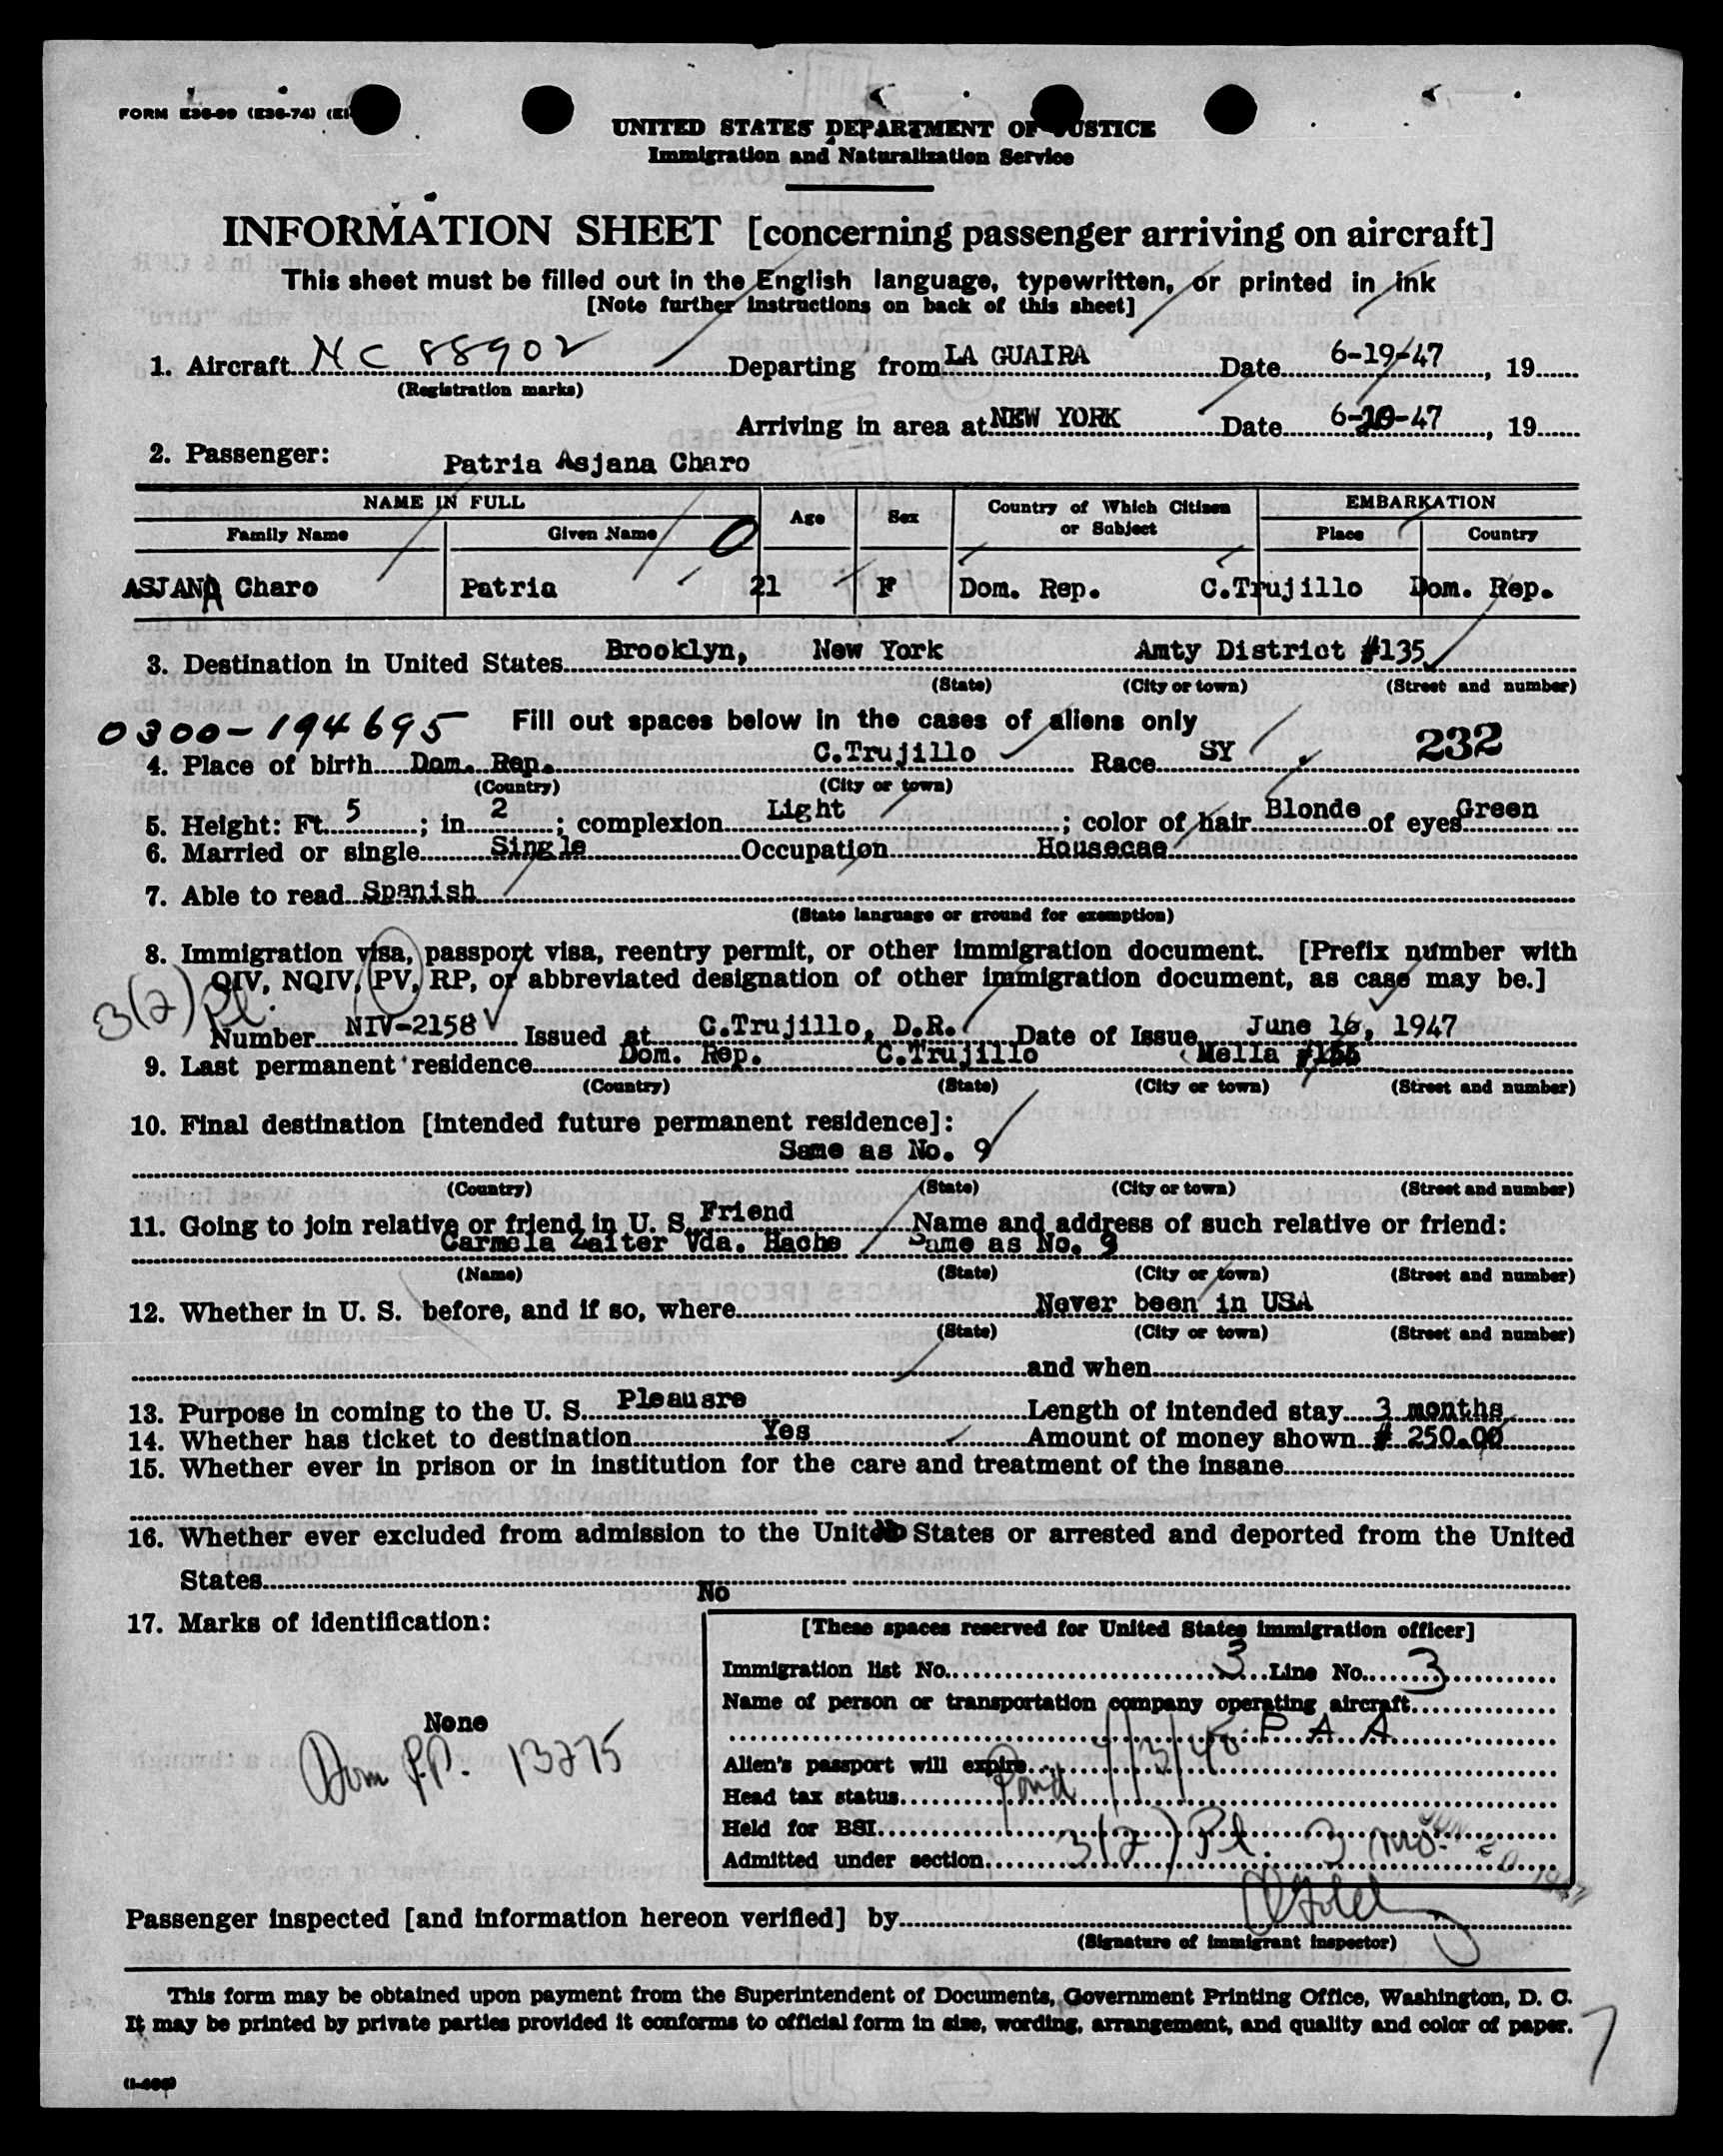 FORM E36-99 (E36-74)
UNITED STATES DEPARTMENT OF JUSTICE
Immigration and Naturalization Service
INFORMATION SHEET [concerning passenger arriving on aircraft]
This sheet must be filled out in the English language, typewritten, or printed in ink
[Note further instructions on back of this sheet]
1. Aircraft NC 88902 Departing from LA GUAIRA Date 6-19-47, 19
(Registration marks)
Arriving in area at NEW YORK Date 6-20-47, 19
2. Passenger: Patria Asjana Charo
NAME IN FULL Age Sex Country of Which Citizen or Subject EMBARKATION
Family Name Given Name Place Country
ASJANA Charo Patria 21 F Dom. Rep. C.Trujillo Dom. Rep.
3. Destination in United States Brooklyn, New York Amty District #135
(State) (City or town) (Street and number)
0300-194695 Fill out spaces below in the cases of aliens only 232
4. Place of birth Dom. Rep. C.Trujillo Race SY
(Country) (City or town)
5. Height: Ft. 5; in. 2; complexion Light; color of hair Blonde of eyes Green
6. Married or single Single Occupation Housecae
7. Able to read Spanish
(State language or ground for exemption)
8. Immigration visa, passport visa, reentry permit, or other immigration document. [Prefix number with
QIV, NQIV, PV, RP, or abbreviated designation of other immigration document, as case may be.]
3(2) Pl.
Number NIV-2158 Issued at C.Trujillo, D.R. Date of Issue June 16, 1947
9. Last permanent residence Dom. Rep. C.Trujillo Mella
(Country) (State) (City or town) (Street and number)
10. Final destination [intended future permanent residence]:
Same as No. 9
(Country) (State) (City or town) (Street and number)
11. Going to join relative or friend in U. S. Friend Name and address of such relative or friend:
Carmela Zaiter Vda. Hache Same as No. 9
(Name) (State) (City or town) (Street and number)
12. Whether in U. S. before, and if so, where Never been in USA
(State) (City or town) (Street and number)
and when
13. Purpose in coming to the U. S. Pleausre Length of intended stay 3 months
14. Whether has ticket to destination Yes Amount of money shown # 250.00
15. Whether ever in prison or in institution for the care and treatment of the insane
No
16. Whether ever excluded from admission to the United States or arrested and deported from the United
States No
17. Marks of identification:
None
Dom P.P. 13275
[These spaces reserved for United States immigration officer]
Immigration list No. 3 Line No. 3
Name of person or transportation company operating aircraft
P. A. A.
Alien's passport will expire
Head tax status
Held for BSI
Admitted under section 3(2) Pl. 3 mo.
Passenger inspected [and information hereon verified] by
(Signature of immigrant inspector)
This form may be obtained upon payment from the Superintendent of Documents, Government Printing Office, Washington, D. C.
It may be printed by private parties provided it conforms to official form in size, wording, arrangement, and quality and color of paper.
7